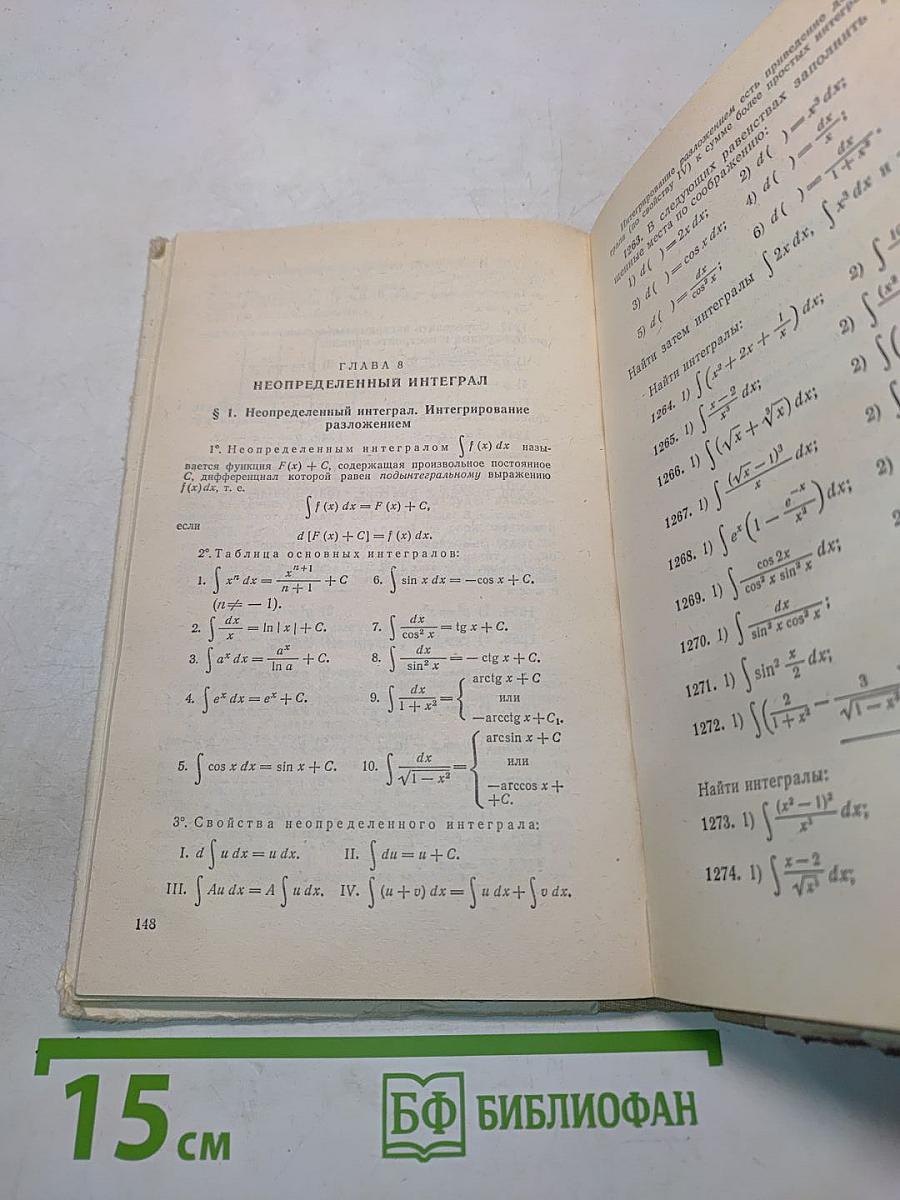 ГЛАВА 8
НЕОПРЕДЕЛЕННЫЙ ИНТЕГРАЛ
§ 1. Неопределенный интеграл. Интегрирование
разложением
1°. Неопределенным интегралом ∫ f (x) dx назы-
вается функция F (x) + C, содержащая произвольное постоянное
C, дифференциал которой равен подынтегральному выражению
f (x) dx, т. е.
∫ f (x) dx = F (x) + C,
если
d [F (x) + C] = f (x) dx.
2°. Таблица основных интегралов:
1. ∫ xⁿ dx = xⁿ⁺¹/(n + 1) + C
(n ≠ — 1).
2. ∫ dx/x = ln | x | + C.
3. ∫ aˣ dx = aˣ/ln a + C.
4. ∫ eˣ dx = eˣ + C.
5. ∫ cos x dx = sin x + C.
6. ∫ sin x dx = —cos x + C.
7. ∫ dx/cos² x = tg x + C.
8. ∫ dx/sin² x = — ctg x + C.
9. ∫ dx/(1 + x²) = { arctg x + C
или
—arcctg x + C₁.
10. ∫ dx/√(1 — x²) = { arcsin x + C
или
—arccos x +
+C.
3°. Свойства неопределенного интеграла:
I. d ∫ u dx = u dx. II. ∫ du = u + C.
III. ∫ Au dx = A ∫ u dx. IV. ∫ (u + v) dx = ∫ u dx + ∫ v dx.
148
Интегрирование разложением есть приведение
(по свойству IV) к сумме более простых
1263. В следующих равенствах заполнить
места по соображению:
1) d ( ) = 2x dx; 2) d ( ) = x³ dx;
3) d ( ) = cos x dx; 4) d ( ) = dx/x;
5) d ( ) = dx/cos² x; 6) d ( ) = dx/(1 + x²).
Найти затем интегралы ∫ 2x dx, ∫ x³ dx и
Найти интегралы:
1264. 1) ∫ (x² + 2x + 1/x) dx; 2) ∫
1265. 1) ∫ (x — 2)/x³ dx; 2) ∫
1266. 1) ∫ (√x + ∛x) dx; 2) ∫
1267. 1) ∫ (√x — 1)³/x dx; 2) ∫
1268. 1) ∫ eˣ (1 — e⁻ˣ/x²) dx; 2)
1269. 1) ∫ cos 2x/(cos² x sin² x) dx;
1270. 1) ∫ dx/(sin² x cos² x);
1271. 1) ∫ sin² x/2 dx;
1272. 1) ∫ (2/(1 + x²) — 3/√(1 — x²)
Найти интегралы:
1273. 1) ∫ (x² — 1)²/x³ dx;
1274. 1) ∫ (x — 2)/√x³ dx;
15 см
БФ БИБЛИОФАН